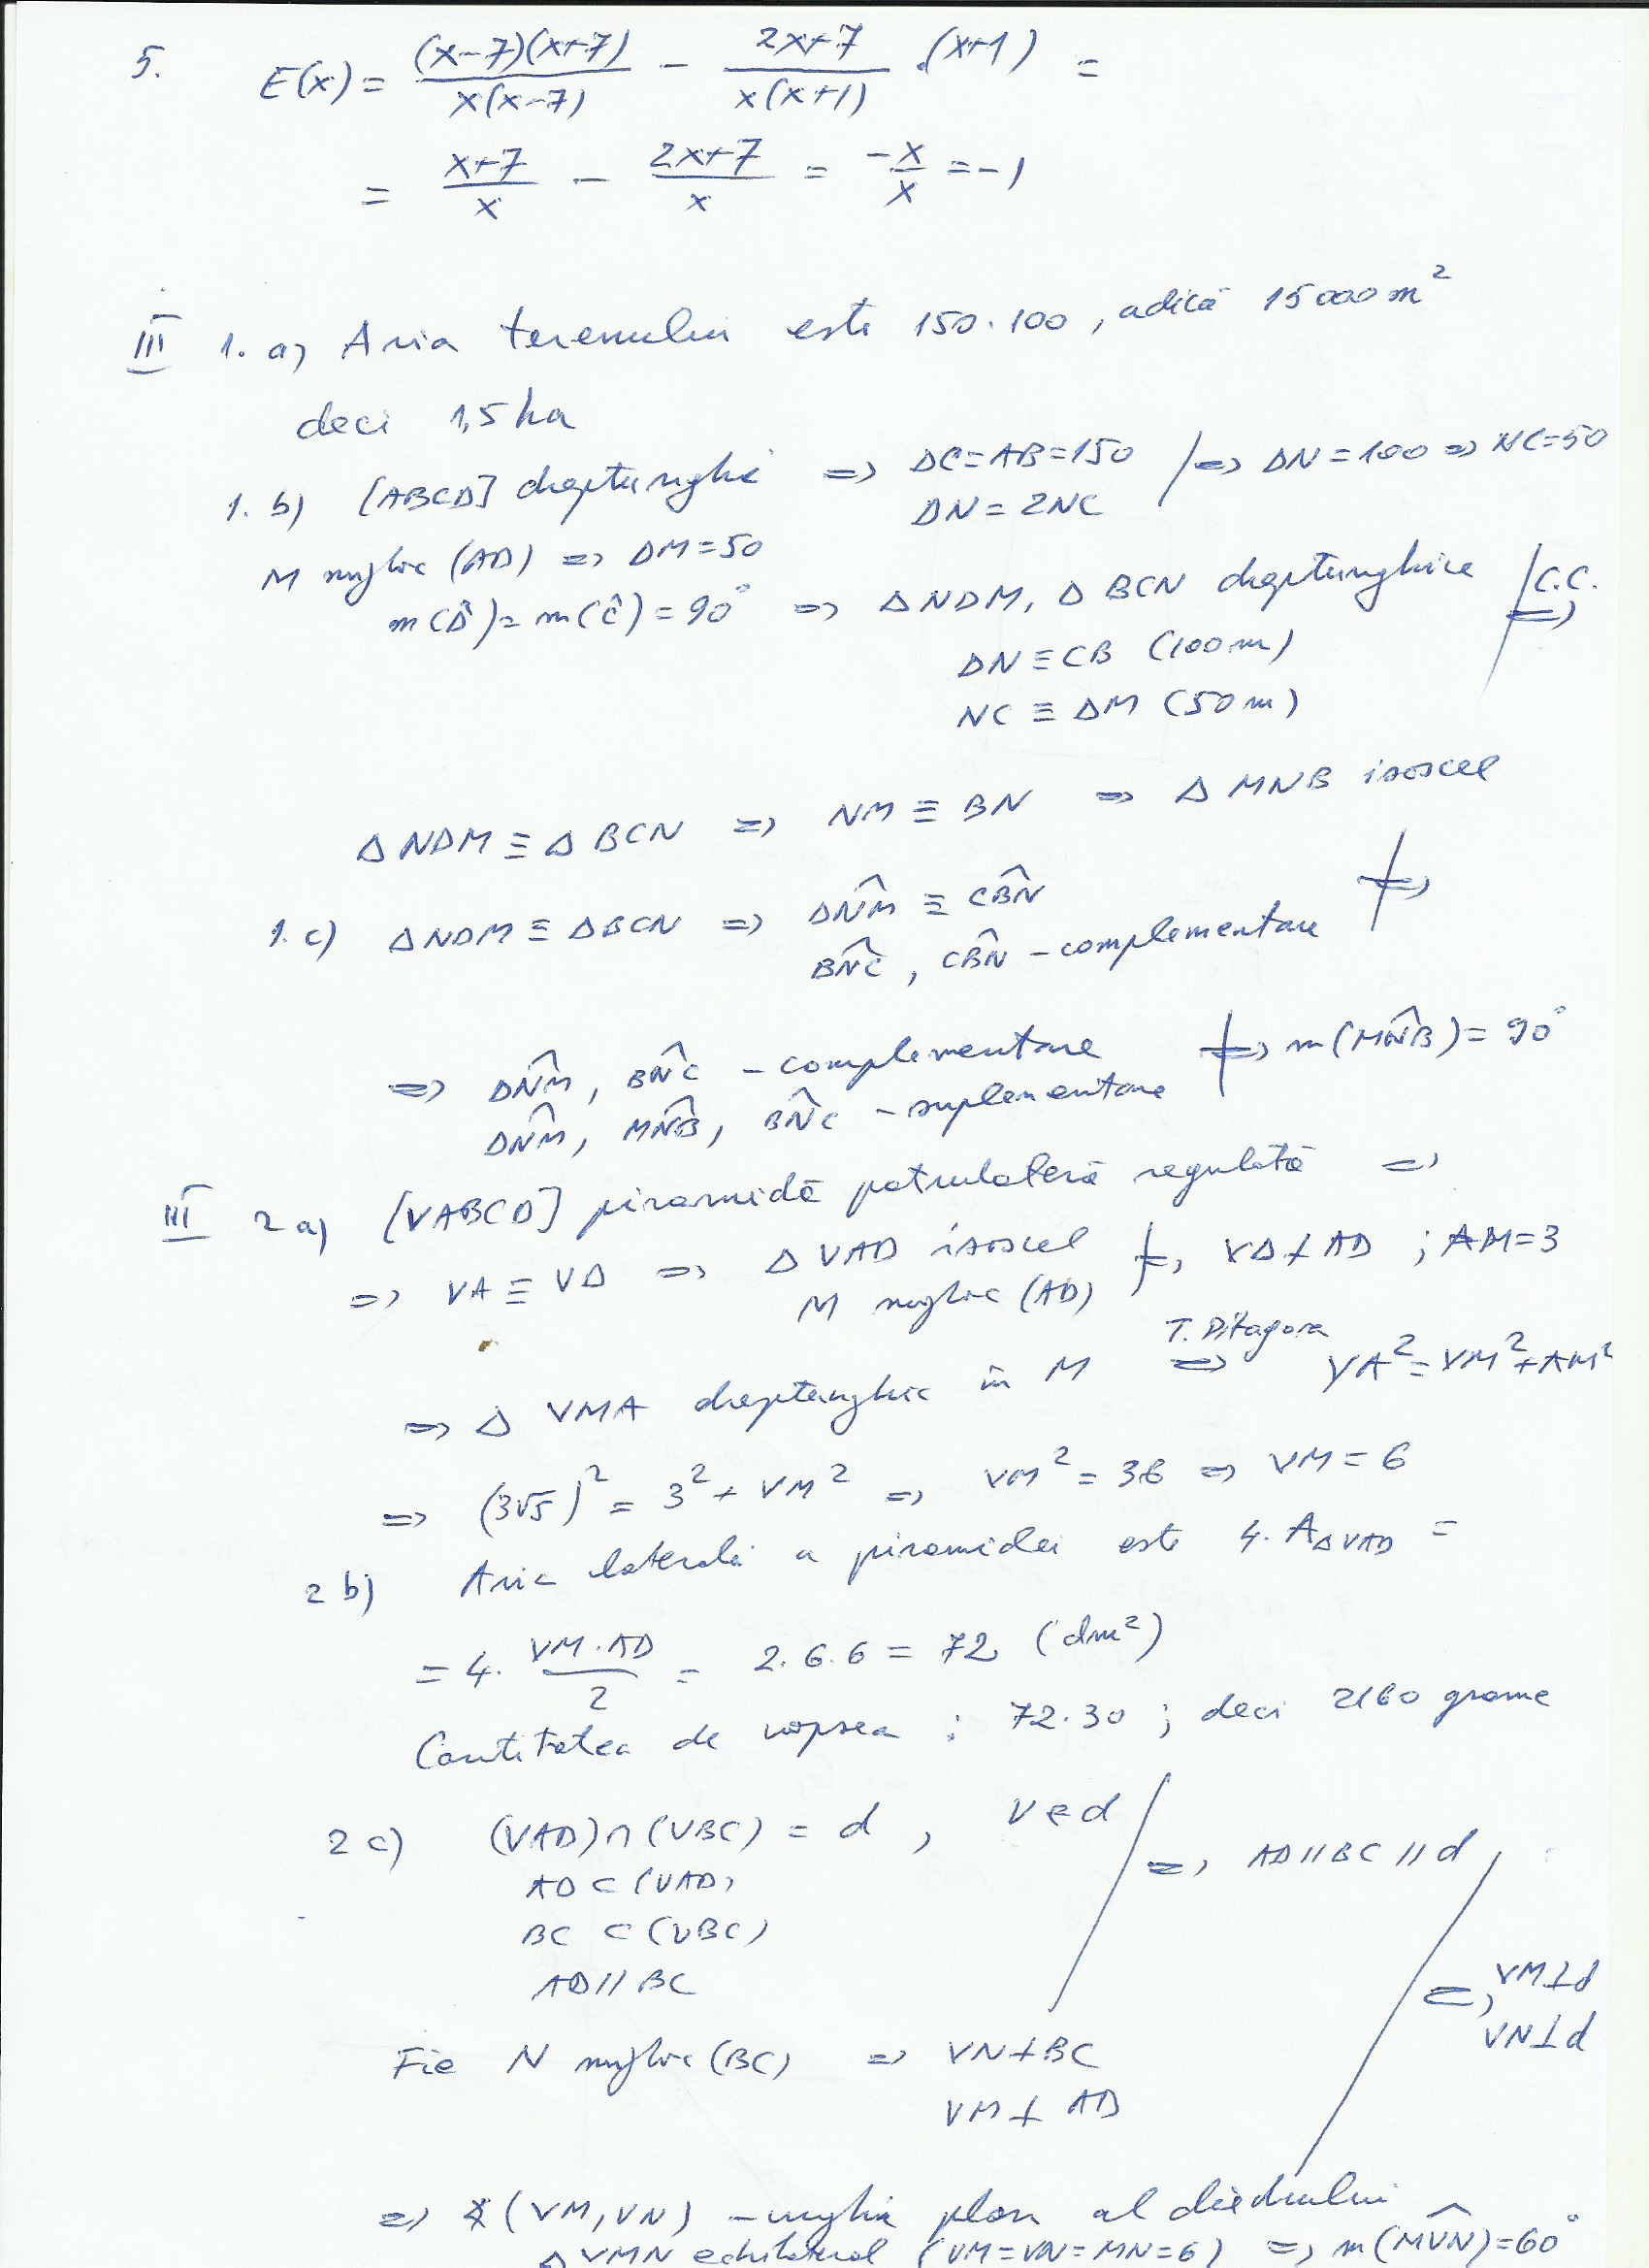 5. E(x) = (x-7)(x+7) / x(x-7) - 2x+7 / x(x+1) · (x+1) =
= x+7 / x - 2x+7 / x = -x / x = -1
III 1. a) Aria terenului este 150·100, adică 15000 m²
deci 1,5 ha
1. b) [ABCD] dreptunghi => DC=AB=150 / => DN=100 => NC=50
DN = 2NC
M mijloc (AD) => DM=50
m(D̂) = m(Ĉ) = 90° => ΔNDM, ΔBCN dreptunghice / C.C. =>
DN ≡ CB (100m)
NC ≡ DM (50m)
ΔNDM ≡ ΔBCN => NM ≡ BN => ΔMNB isoscel
1. c) ΔNDM ≡ ΔBCN => DN̂M ≡ CB̂N / =>
BN̂C, CB̂N - complementare
=> DN̂M, BN̂C - complementare / => m(MN̂B) = 90°
DN̂M, MN̂B, BN̂C - suplementare
III 2 a) [VABCD] piramidă patrulateră regulată =>
=> VA ≡ VD => ΔVAD isoscel / => VD ⊥ AD ; AM=3
M mijloc (AD)
=> Δ VMA dreptunghic în M T. Pitagora => VA² = VM² + AM²
=> (3√5)² = 3² + VM² => VM² = 36 => VM = 6
2 b) Aria laterală a piramidei este 4·A ΔVAD =
= 4· VM·AD / 2 = 2·6·6 = 72 (dm²)
Cantitatea de vopsea : 72·30 ; deci 2160 grame
2 c) (VAD)∩(VBC) = d , V∈d / => AD∥BC∥d
AD ⊂ (VAD)
BC ⊂ (VBC)
AD∥BC
=> VM⊥d
VN⊥d
Fie N mijloc (BC) => VN⊥BC
VM ⊥ AD
=> ∢(VM,VN) - unghi plan al diedrului
ΔVMN echilateral (VM=VN=MN=6) => m(MV̂N)=60°